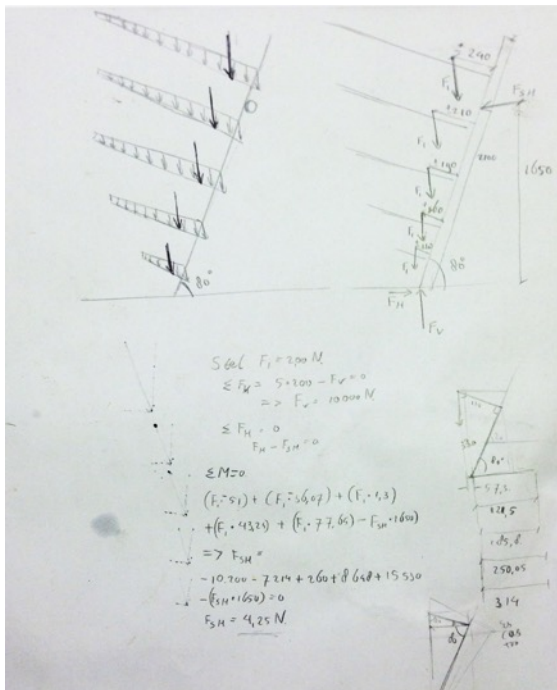 240
F₁
F_SH
210
F₁
190
2100
1650
F₁
160
F₁
F₁
80°
80°
F_H
F_V
Stel F₁ = 200 N.
ΣF_V = 5·200 - F_V = 0
=> F_V = 10000 N
ΣF_H = 0
F_H - F_SH = 0
ΣM=0
(F₁·-51) + (F₁·-36,07) + (F₁·1,3)
+(F₁·43,29) + (F₁·77,65) - F_SH·1650)
=> F_SH =
-10.200 - 7214 + 260 + 8658 + 15530
-(F_SH·1650) = 0
F_SH = 4,25 N
80°
57,5
128,5
185,8
250,05
314
80